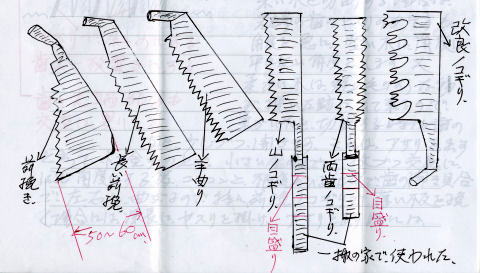 前挽き.
長い前挽.
半曲り
山ノコギリ.
両歯ノコギリ.
改良ノコギリ.
目盛り
目盛り
50〜60cm.
一般の家で使われた.